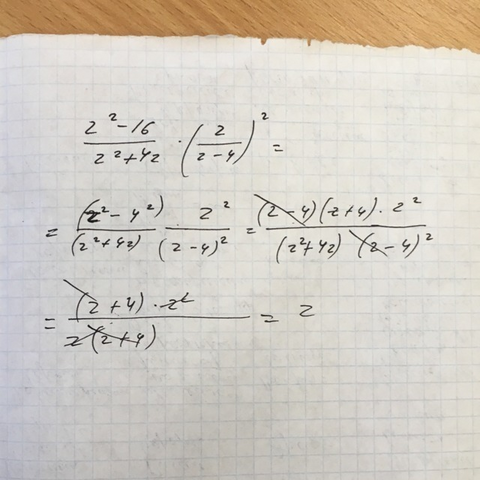 (z²-16)/(z²+4z) · (z/(z-4))² =
= (z²-4²)/(z²+4z) · z²/(z-4)² = (z-4)(z+4)·z²/(z²+4z)(z-4)²
= (z+4)·z²/z(z+4) = z